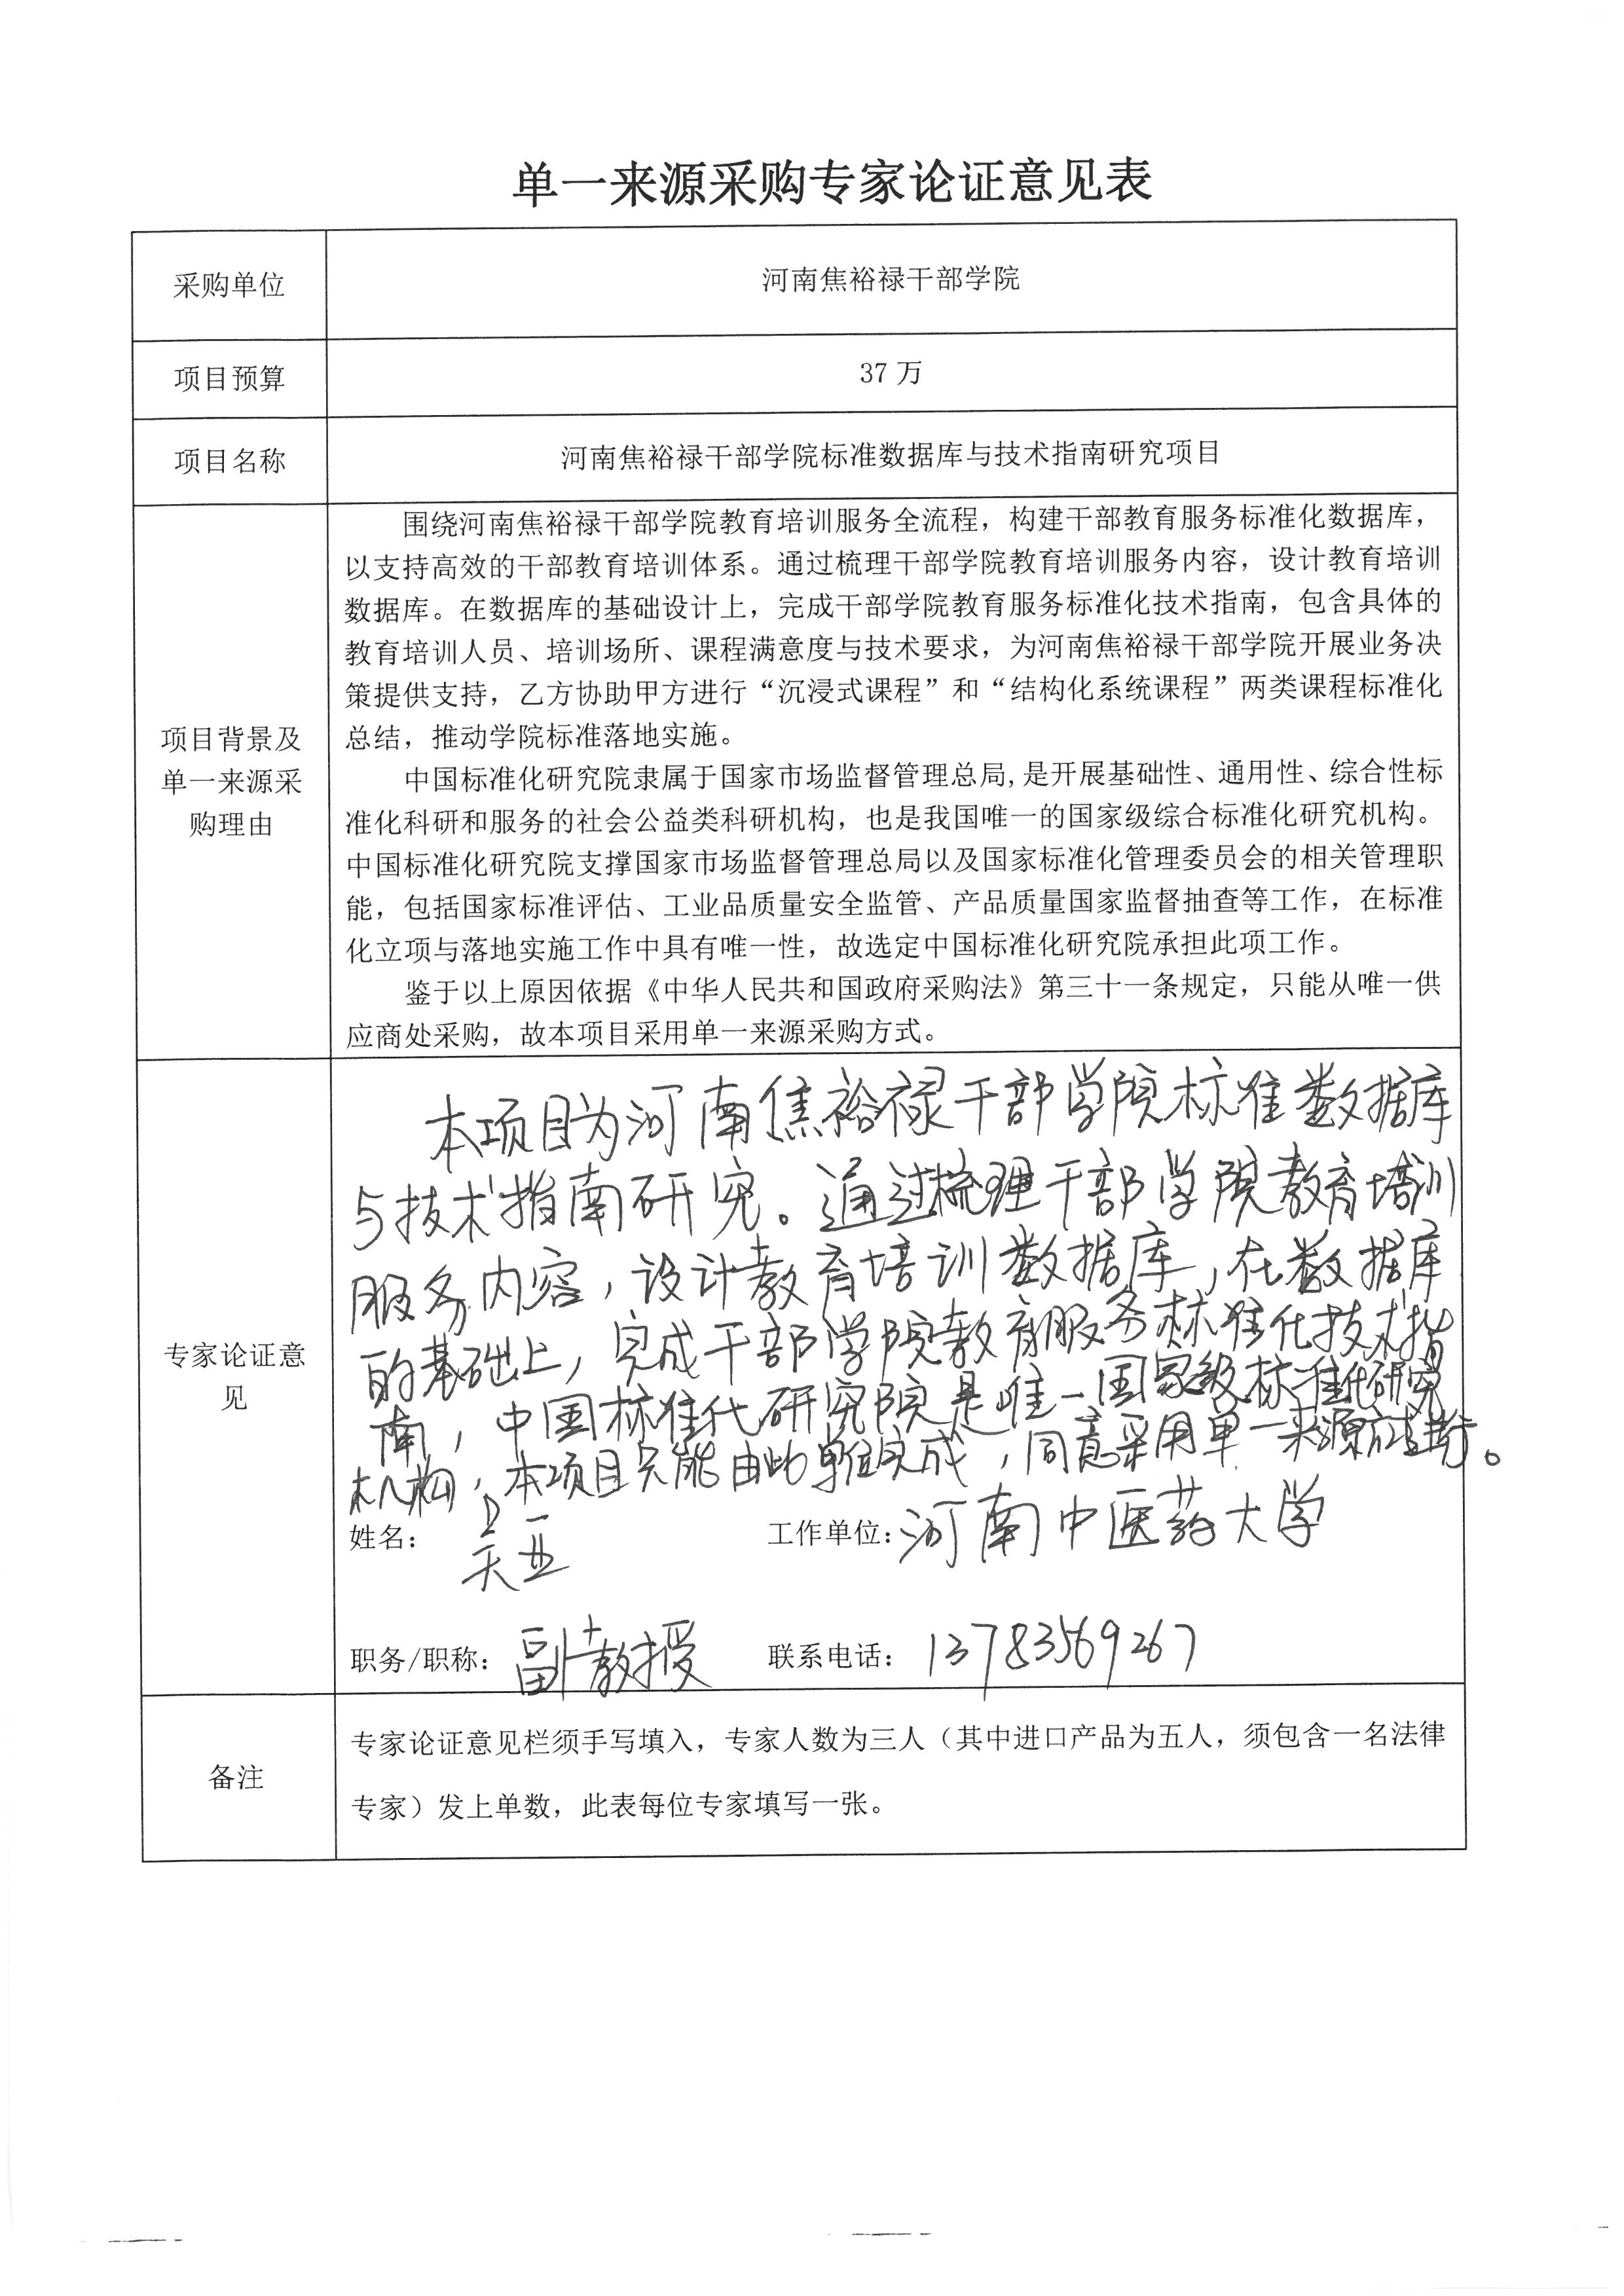 单一来源采购专家论证意见表
采购单位
河南焦裕禄干部学院
项目预算
37 万
项目名称
河南焦裕禄干部学院标准数据库与技术指南研究项目
项目背景及
单一来源采
购理由
围绕河南焦裕禄干部学院教育培训服务全流程，构建干部教育服务标准化数据库，
以支持高效的干部教育培训体系。通过梳理干部学院教育培训服务内容，设计教育培训
数据库。在数据库的基础设计上，完成干部学院教育服务标准化技术指南，包含具体的
教育培训人员、培训场所、课程满意度与技术要求，为河南焦裕禄干部学院开展业务决
策提供支持，乙方协助甲方进行“沉浸式课程”和“结构化系统课程”两类课程标准化
总结，推动学院标准落地实施。
中国标准化研究院隶属于国家市场监督管理总局,是开展基础性、通用性、综合性标
准化科研和服务的社会公益类科研机构，也是我国唯一的国家级综合标准化研究机构。
中国标准化研究院支撑国家市场监督管理总局以及国家标准化管理委员会的相关管理职
能，包括国家标准评估、工业品质量安全监管、产品质量国家监督抽查等工作，在标准
化立项与落地实施工作中具有唯一性，故选定中国标准化研究院承担此项工作。
鉴于以上原因依据《中华人民共和国政府采购法》第三十一条规定，只能从唯一供
应商处采购，故本项目采用单一来源采购方式。
专家论证意
见
本项目为河南焦裕禄干部学院标准数据库
与技术指南研究。通过梳理干部学院教育培训
服务内容，设计教育培训数据库，在数据库
的基础上，完成干部学院教育服务标准化技术指
南，中国标准化研究院是唯一国家级标准化研究
机构，本项目只能由此单位完成，同意采用单一来源方式进行。
姓名：
工作单位：河南中医药大学
职务/职称：副教授
联系电话：13783569267
备注
专家论证意见栏须手写填入，专家人数为三人（其中进口产品为五人，须包含一名法律
专家）发上单数，此表每位专家填写一张。